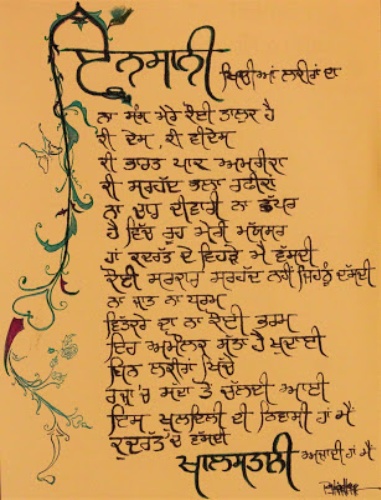 ਇਨਸਾਨੀ ਖਿਚੀਆਂ ਲਕੀਰਾਂ ਦਾ
ਨਾ ਸੰਗ ਮੇਰੇ ਕੋਈ ਤਾਲੁਕ ਹੈ
ਕੀ ਦੇਸ, ਕੀ ਵੀਦੇਸ
ਕੀ ਭਾਰਤ ਪਾਕ ਅਮਰੀਕਾ
ਕੀ ਸਰਹੱਦ ਭਲਾ
ਨਾ ਚਾਰ ਦੀਵਾਰੀ ਨਾ ਛੱਪਰ
ਹੈ ਵਿੱਚ ਰੂਹ ਮੇਰੀ
ਹਾਂ ਕੁਦਰੱਤ ਦੇ ਵਿਹੜੇ ਮੈਂ ਵੱਸਦੀ
ਕੋਈ ਸਰਕਾਰ ਸਰਹੱਦ ਨਾਹੀਂ ਜਿਹਨੂੰ ਦੱਸਦੀ
ਨਾ ਜਾਤ ਨਾ ਧਰਮ
ਵਿੱਤਕਰੇ ਦਾ ਨਾ ਕੋਈ ਭਰਮ
ਇਹ ਅਮੋਲਕ ਸੱਤਾ ਹੈ ਖੁਦਾਈ
ਬਿਨ ਲਕੀਰਾਂ ਖਿੱਚੇ
ਰਜ਼ਾ 'ਚ ਸਦਾ ਤੋਂ ਚੱਲਦੀ ਆਈ
ਇਸ ਖੁਲਦਿਲੀ ਦੀ ਨਿਵਾਸੀ ਹਾਂ ਮੈਂ
ਕੁਦਰੱਤ 'ਚ ਵੱਸਦੀ
ਖਾਲਸਤਾਨੀ ਅਜ਼ਾਦੀ ਹਾਂ ਮੈਂ